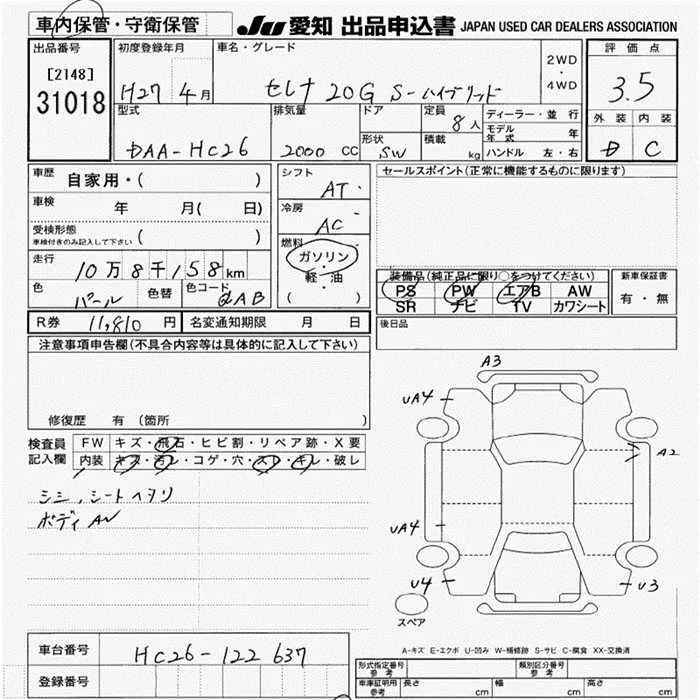 車内保管・守衛保管
JU 愛知 出品申込書 JAPAN USED CAR DEALERS ASSOCIATION
出品番号 初度登録年月 車名・グレード 2WD ・ 4WD 評価点
[2148]
31018
H27 4月 セレナ 20G S-ハイブリッド 3.5
型式 排気量 ドア 定員 8人 ディーラー・並行 外装 内装
モデル年式 年
DAA-HC26 2000 CC 形状 SW 積載 kg ハンドル 左・右 D C
車歴 自家用・( ) シフト AT・ セールスポイント(正常に機能するものに限ります)
車検 年 月( 日) 冷房 AC・
受検形態 ( )
車検付きのみ記入して下さい
燃料 ガソリン・軽油・( )
走行 10万8千158km 装備品(純正品に限り○をつけてください) 新車保証書
色 パール 色替 色コード QAB PS PW エアB AW 有・無
SR ナビ TV カワシート
R券 11,810円 名変通知期限 月 日 後日品
注意事項申告欄(不具合内容等は具体的に記入して下さい)
A3
UA4
修復歴 有 (箇所 )
検査員 FW キズ・飛石・ヒビ割・リペア跡・X要
記入欄 内装 キズ・汚レ・コゲ・穴・スレ・キレ・破レ
A2
シミ,シートヘタリ
ボディAW
UA4
U4 U3
スペア
A-キズ E-エクボ U-凹み W-補修跡 S-サビ C-腐食 XX-交換済
車台番号 HC26-122637
登録番号
形式指定番号 参考 類別区分番号 参考
車庫証明用 参考 長さ cm 幅 cm 高さ cm